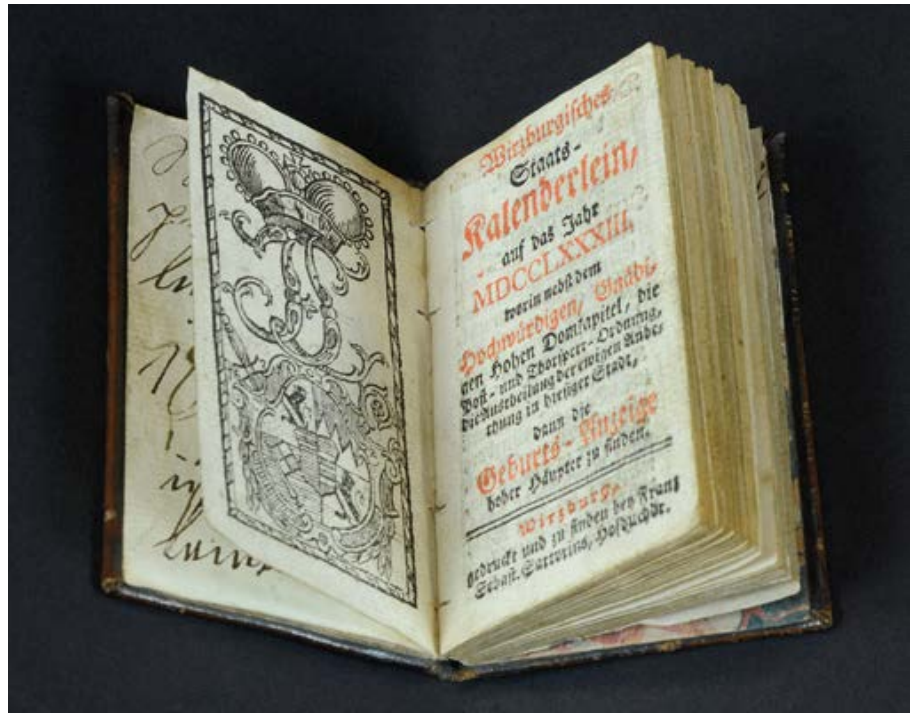 Wirzburgisches
Staats-
Kalenderlein,
auf das Jahr
MDCCLXXXIII,
worin nebst dem
Hochwürdigen, Gnädi,
gen Hohen Domkapitel, die
Post- und Thorsperr-Ordnung,
die Austheilung der ewigen Anbe-
thung in hiesiger Stadt,
dann die
Geburts-Anzeige
hoher Häupter zu finden.
Wirzburg,
gedruckt und zu finden bey Franz
Sebast. Sartorius, Hofbuchdr.